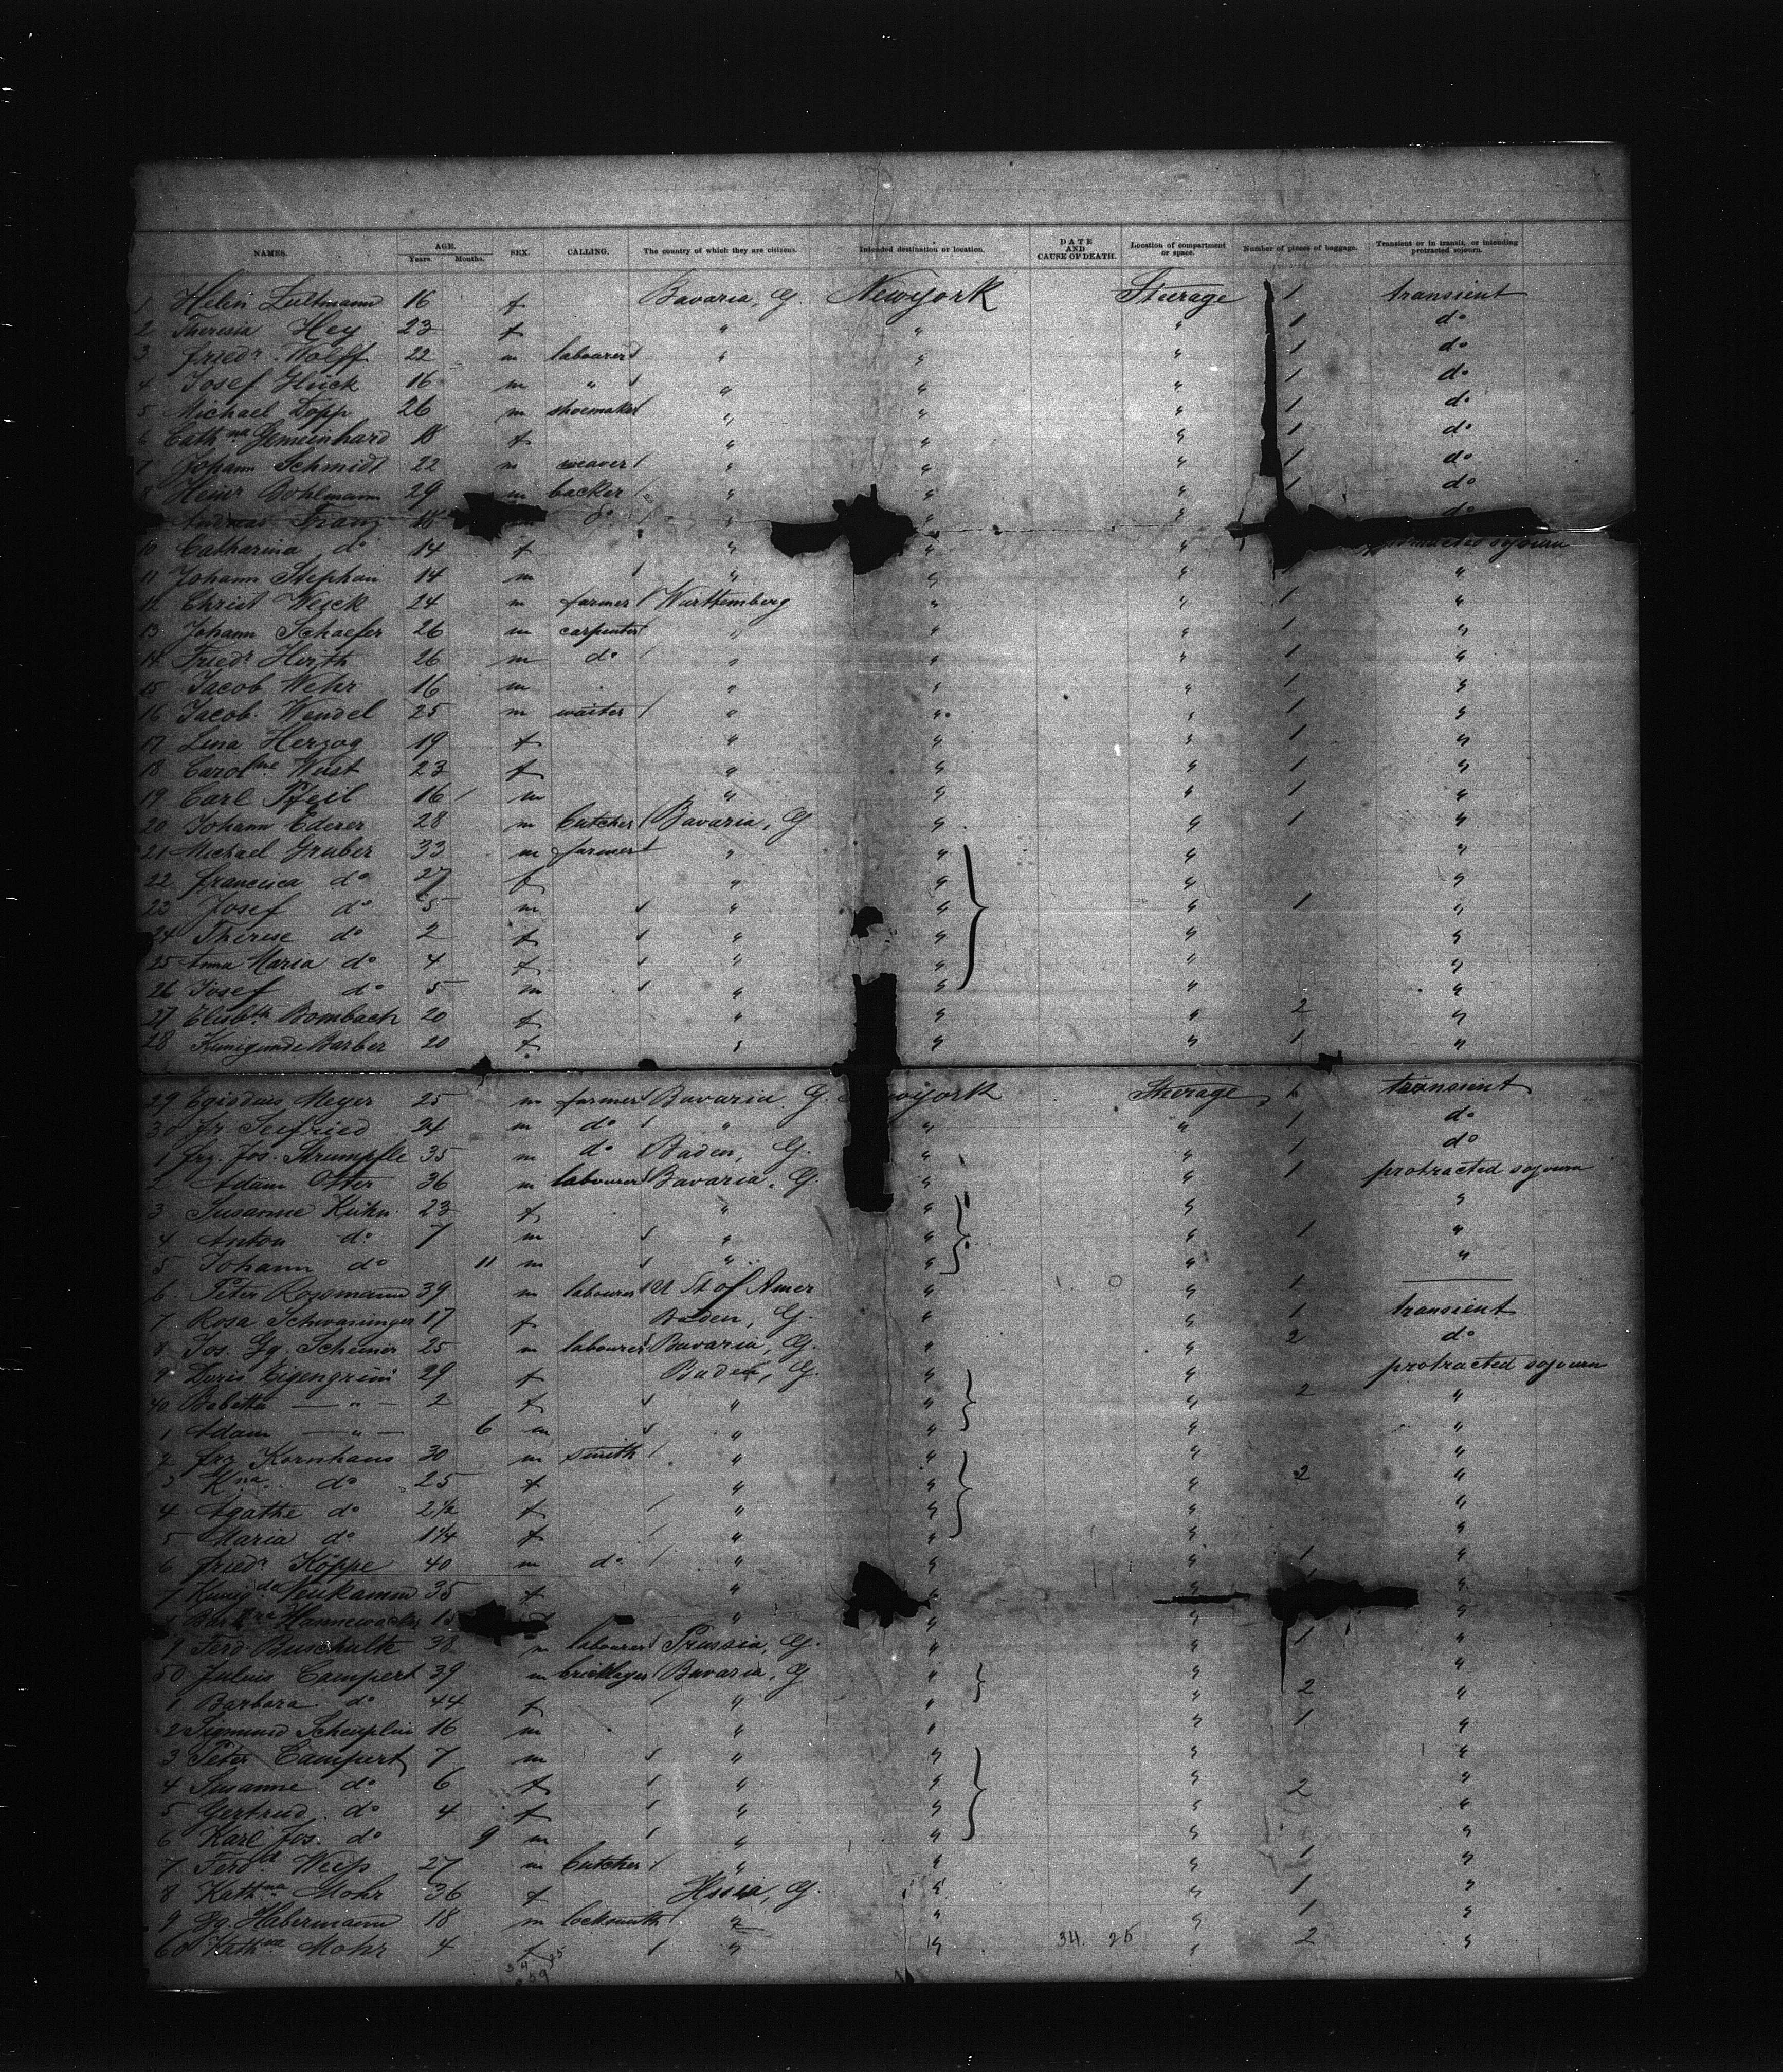 NAMES. AGE. Years. Months. SEX. CALLING. The country of which they are citizens. Intended destination or location. DATE AND CAUSE OF DEATH. Location of compartment or space. Number of pieces of baggage. Transient or in transit, or intending protracted sojourn.
1 Helen 16 f Bavaria, G. Newyork Steerage 1 transient
2 Theresia Hey 23 f " " " 1 do
3 Friedr. Wolff 22 m labourer " " " 1 do
4 Josef Glück 16 m " " " " 1 do
5 Michael Dopp 26 m shoemaker " " " 1 do
6 Cathna Gemeinhard 18 f " " " 1 do
7 Johann Schmidt 22 m weaver " " " 1 do
8 Heinr Bohlmann 29 m backer " " " 1 do
Andreas Franz 16 do " " " do
10 Catharina do 14 f " " " protracted sojourn
11 Johann Stephan 14 m " " " "
12 Christ Weick 24 m farmer Wurttemberg " " 1 "
13 Johann Schaefer 26 m carpenter " " " 1 "
14 Friedr Hirth 26 m do " " " 1 "
15 Jacob Wehr 16 m " " " 1 "
16 Jacob Wendel 25 m waiter " " " 1 "
17 Lina Herzog 19 f " " " 1 "
18 Caroline Wust 23 f " " " 1 "
19 Carl Pfeil 16 m " " " 1 "
20 Johann Ederer 28 m butcher Bavaria, G " " 1 "
21 Michael Gruber 33 m farmer " " " "
22 Francisca do 27 f " " " "
23 Josef do 5 m " " " 1 "
24 Therese do 2 f " " " "
25 Anna Maria do 4 f " " " "
26 Josef do 5 m " " " "
27 Elisbth Bombach 20 f " " " 2 "
28 Kunigunde Barber 20 f " " " 1 "
29 Egidius Meyer 25 m farmer Bavaria G. Newyork Steerage transient
30 Fr. Seefried 24 m do " " " 1 do
1 Frz. Jos. Strumpfle 35 m do Baden, G. " " 1 do
2 Adam Otter 36 m labourer Bavaria, G. " " 1 protracted sojourn
3 Susanne Kühn 23 f " " " "
4 Anton do 7 m " " " 1 "
5 Johann do 11 m " " " "
6 Peter Rossmann 39 m labourer U St of Amer " " 1 —
7 Rosa Schwasinger 17 f Baden, G. " " 1 transient
8 Jos. Gg. Scheiner 25 m labourer Bavaria, G. " " 2 do
9 Doris Eigengrün 29 f Baden, G. " " protracted sojourn
40 Babetta — " — 2 f " " " 2 "
1 Adam — " — 6 m " " " "
2 Frz Kornhaus 30 m smith " " " "
3 Kna do 25 f " " " 2 "
4 Agathe do 2 1/2 f " " " "
5 Maria do 1 1/4 f " " " "
6 Friedr Köppe 40 m do " " " 1 "
7 Kunigda Neukamm 35 f " " " "
8 15 f " " " "
9 Ferd Buschulte 38 m labourer Prussia, G. " " 1 "
50 Julius Campert 39 m bricklayer Bavaria, G " " "
1 Barbara do 44 f " " " 2 "
2 Sigmund Scheuplein 16 m " " " 1 "
3 Peter Campert 7 m " " " "
4 Susanne do 6 f " " " 2 "
5 Gertrud do 4 f " " " "
6 Karl Jos. do 9 m " " " "
7 Ferdd Weiss 27 m butcher " " " 1 "
8 Kathna Mohr 36 f Hssia, G. " " 1 "
9 Gg. Habermann 18 m locksmith " " " 1 "
60 Kathna Mohr 4 f " " 34. 26 " 2 "